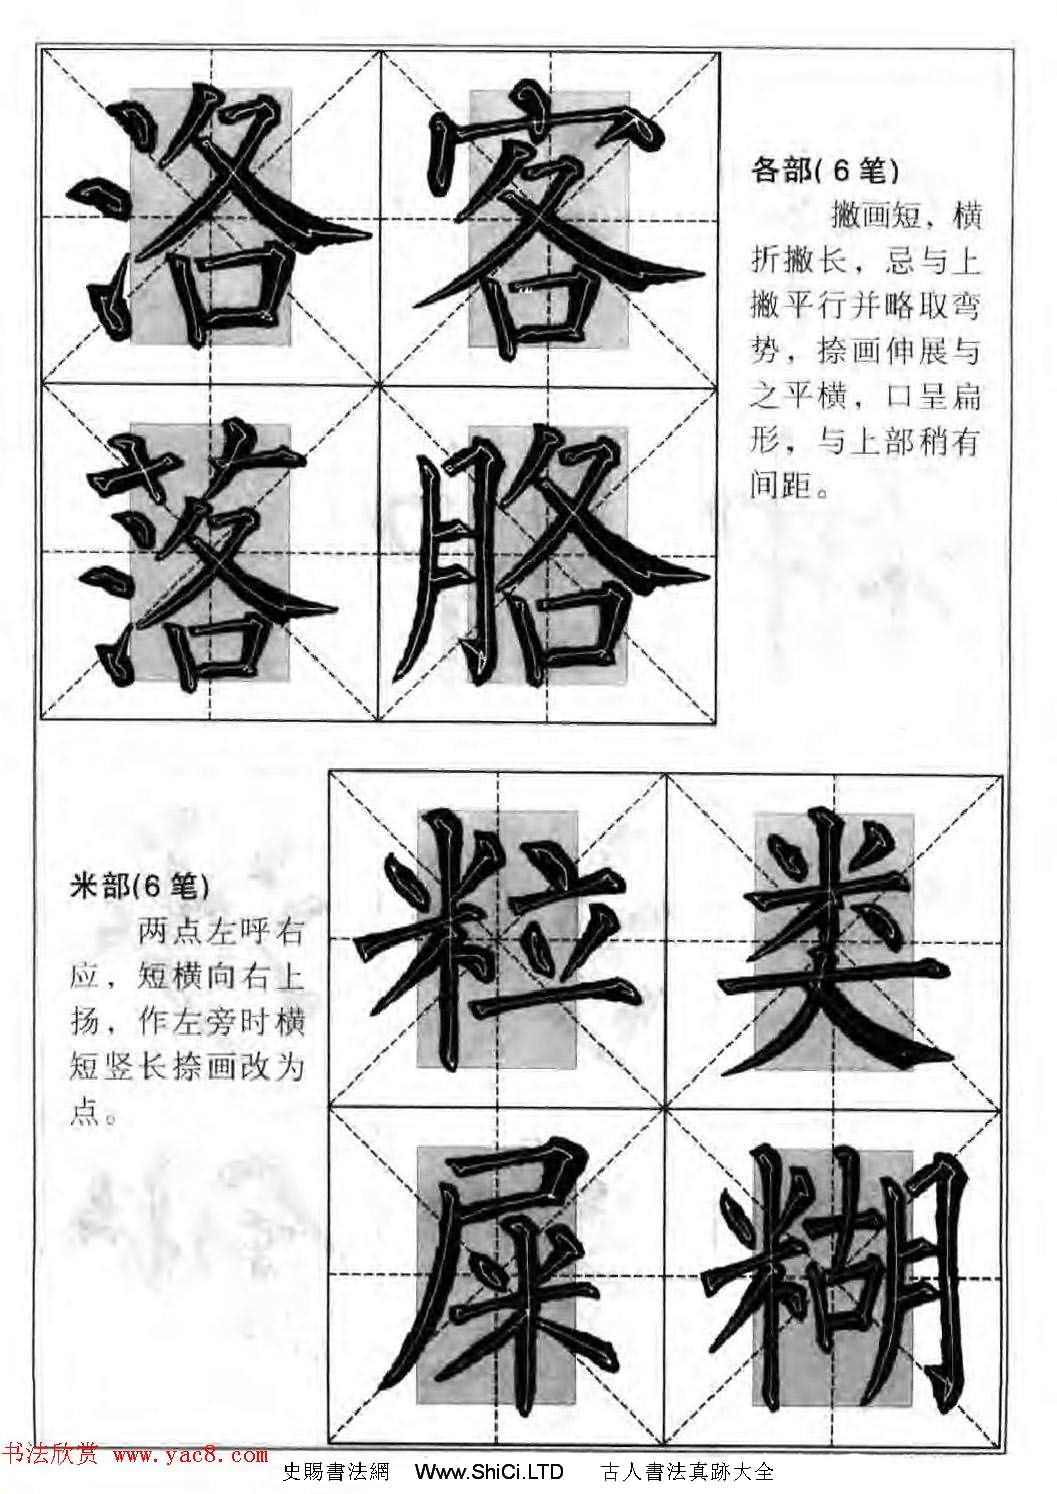 洛 客
各部(6笔)
撇画短，横
折撇长，忌与上
撇平行并略取弯
势，捺画伸展与
之平横，口呈扁
形，与上部稍有
间距。
落 胳
粒 类
米部(6笔)
两点左呼右
应，短横向右上
扬，作左旁时横
短竖长捺画改为
点。
屎 糊
书法欣赏 www.yac8.com
史賜書法網 Www.ShiCi.LTD 古人書法真跡大全